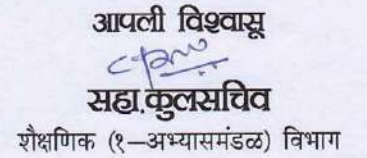 आपली विश्वासू
सहा.कुलसचिव
शैक्षणिक (१—अभ्यासमंडळ) विभाग